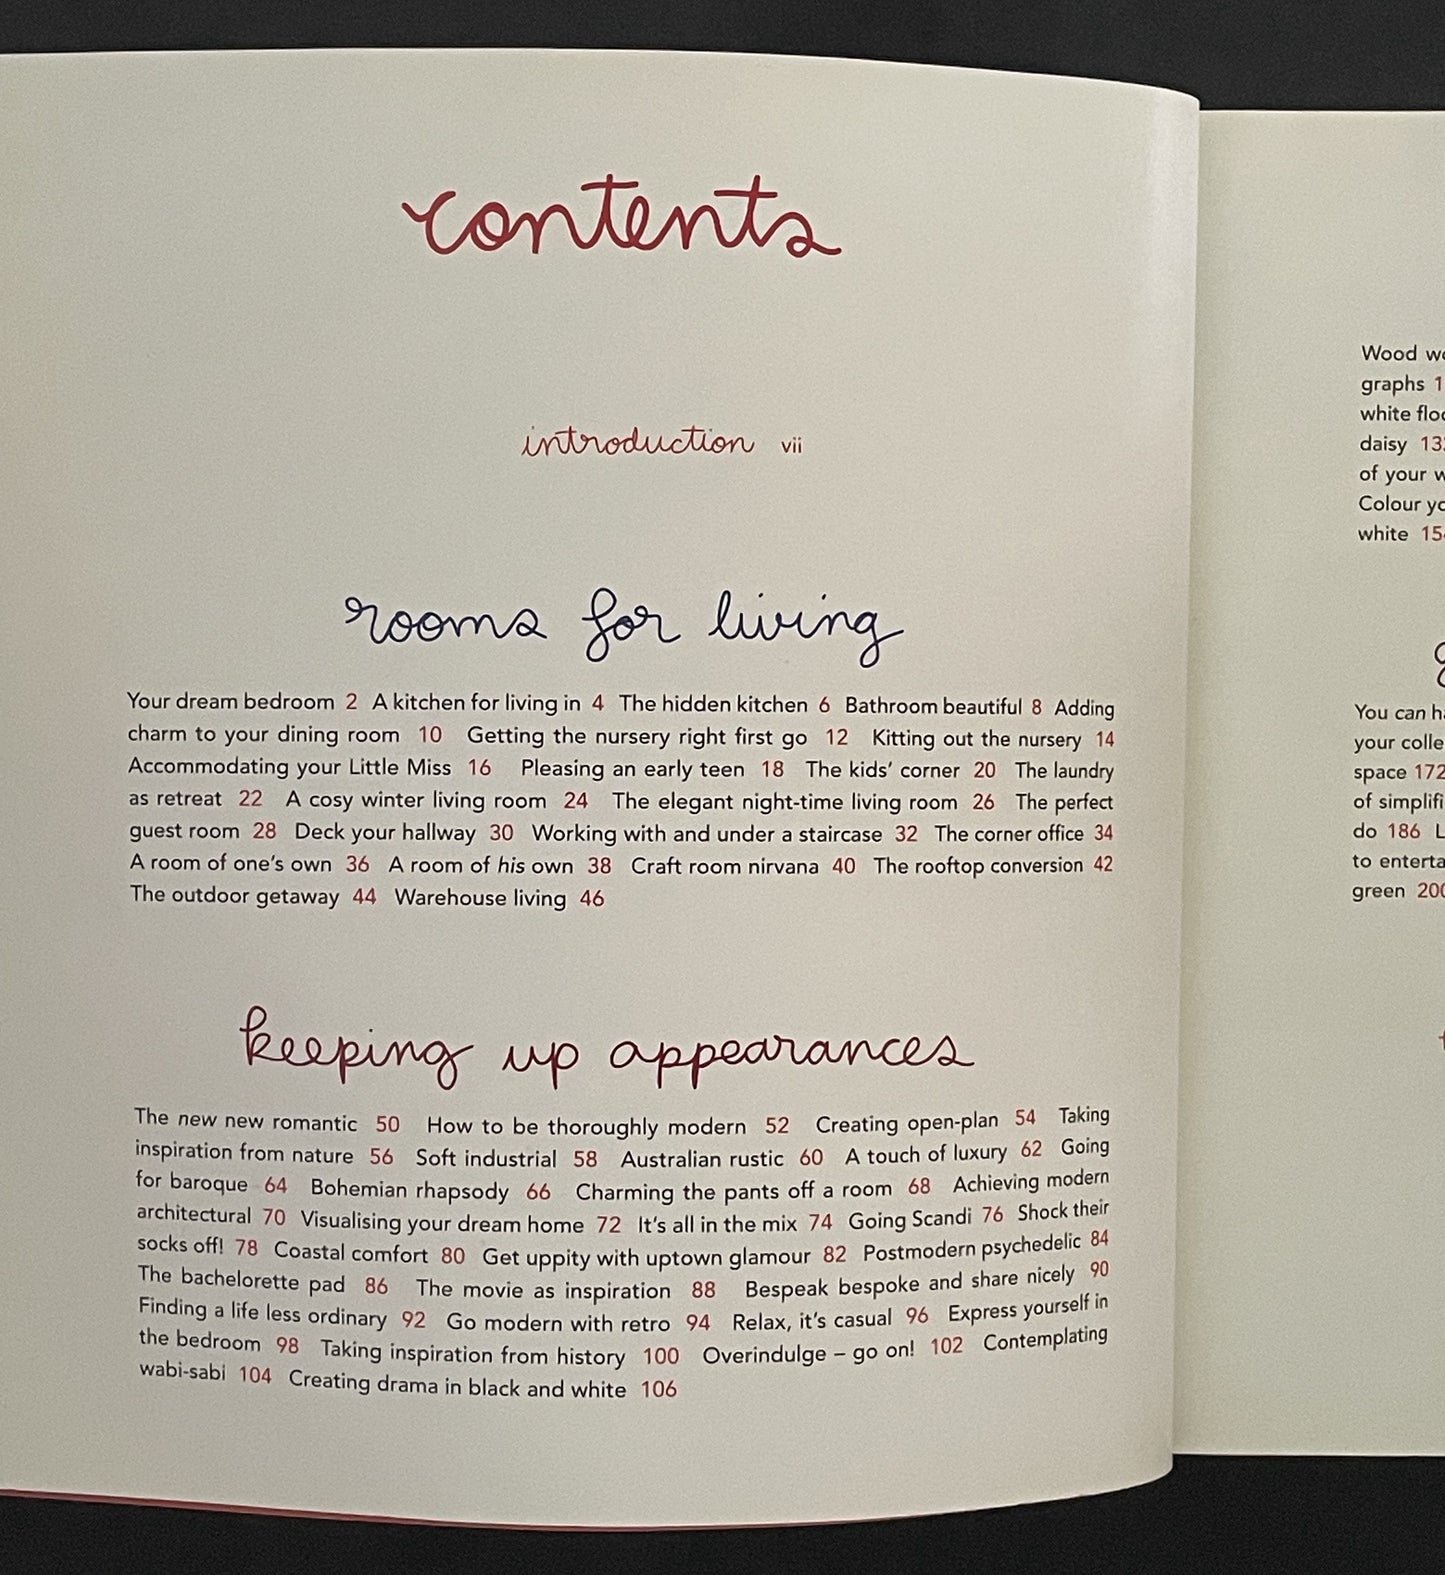 contents
introduction vii
rooms for living
Your dream bedroom 2 A kitchen for living in 4 The hidden kitchen 6 Bathroom beautiful 8 Adding
charm to your dining room 10 Getting the nursery right first go 12 Kitting out the nursery 14
Accommodating your Little Miss 16 Pleasing an early teen 18 The kids' corner 20 The laundry
as retreat 22 A cosy winter living room 24 The elegant night-time living room 26 The perfect
guest room 28 Deck your hallway 30 Working with and under a staircase 32 The corner office 34
A room of one's own 36 A room of his own 38 Craft room nirvana 40 The rooftop conversion 42
The outdoor getaway 44 Warehouse living 46
keeping up appearances
The new new romantic 50 How to be thoroughly modern 52 Creating open-plan 54 Taking
inspiration from nature 56 Soft industrial 58 Australian rustic 60 A touch of luxury 62 Going
for baroque 64 Bohemian rhapsody 66 Charming the pants off a room 68 Achieving modern
architectural 70 Visualising your dream home 72 It's all in the mix 74 Going Scandi 76 Shock their
socks off! 78 Coastal comfort 80 Get uppity with uptown glamour 82 Postmodern psychedelic 84
The bachelorette pad 86 The movie as inspiration 88 Bespeak bespoke and share nicely 90
Finding a life less ordinary 92 Go modern with retro 94 Relax, it's casual 96 Express yourself in
the bedroom 98 Taking inspiration from history 100 Overindulge – go on! 102 Contemplating
wabi-sabi 104 Creating drama in black and white 106
Wood
graphs
white
daisy
of your
Colour
white
You can
your
space 172
of
do 186
to
green